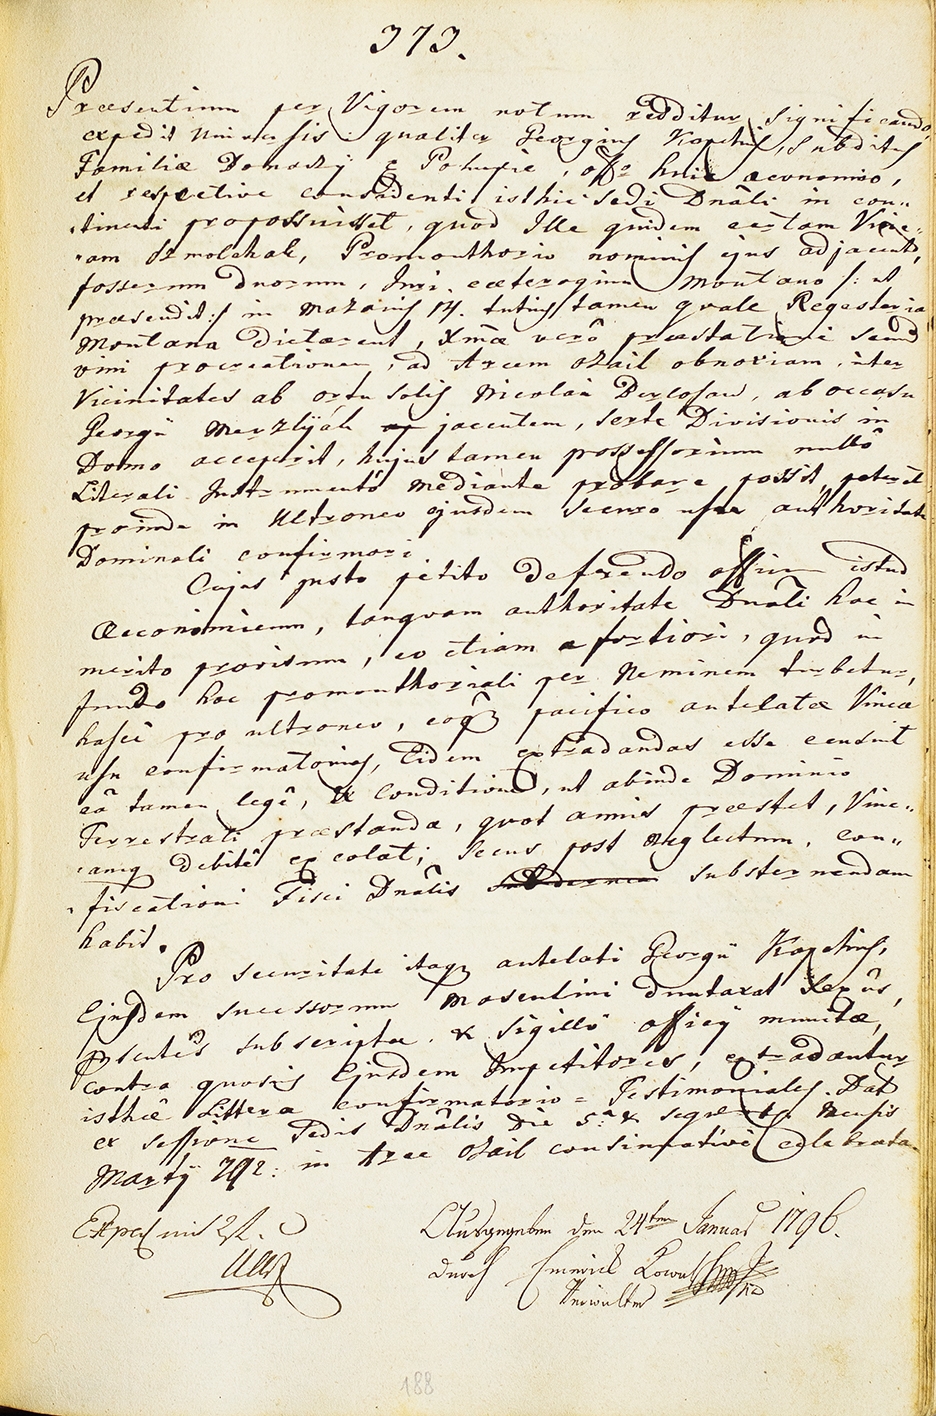 373.
Præsentium per Vigorem notum redditur, significando,
expedit Universis: qualiter Georgius Kopetin, Subditus
Familiæ Domaszÿ è Pohupie, offo huic æconomico,
et respective considenti isthic Sedi Dnâli in con„
„tinenti propossuisset, quod Ille quidem certam Vine„
„am Szmolchak, Promonthorio nominis ejus adjacente,
fossorum duorum, Juri cæteroquin Montano /: ut
præsendit :/ in Mazaius 14. tutius tamen quale Regesteria
Montana Dictarent, Xmæ verô præstationi secund
vini procreationem, ad Arcem Ozail obnoxiam, inter
Vicinitates ab ortu solis Nicolai Derlosaw, ab occasu
Georgii Merzlyák jacentem, Sorte Divisionis in
Domo acceperit, hujus tamen possessorium nullô
Literali Instrumentô mediante probare possit, peterét
proinde in Ultroneo ejusdem securo usu authoritate
Dominali confirmari.
Cujus justo petito deferendo offium istud
Æconomicum, tanquam authoritate Dnâli hoc in
merito provisum, eo etiam a fortiori, quod in
fundo hoc promonthoriali per Neminem turbetur,
hasce pro ultroneo, eoq pacifico antelatæ Vineæ
usu confirmatorias, Eidem extradandas esse censuit
eâ tamen legê, & Conditione, ut abinde Dominio
Terrestrali præstanda, quot annis præstet, Vine„
„amq debitê excolat; secus post neglectum, con„
„fiscationi Fisci Dnâlis substernendam
habit.
Pro securitate itaq antelati Georgii Kopetin,
Ejusdem sucessorum Masculini duntaxat Sexûs,
Psentes subscriptæ & sigillô officÿ munitæ,
contra quosvis Ejusdem Impetitores, extradantur
isthæ Litteræ confirmatorio = Testimoniales. Dat
ex sessione Sedis Dnâlis Die 5â & seqventu Mensis
Martÿ 792: in Arce Ozail consinative celebrata.
Ausgegeben den 24ten Januar 1796.
durch Emerick Kowat
Verwalter
188